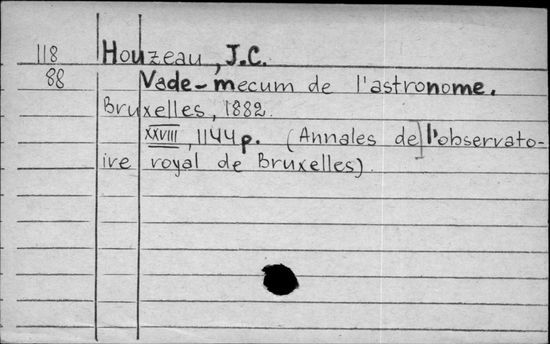 118 Houzeau, J.C.
88 Vade-mecum de l'astronome.
Bruxelles, 1882.
XXVIII, 1144p. (Annales de l'observato-
ire royal de Bruxelles)